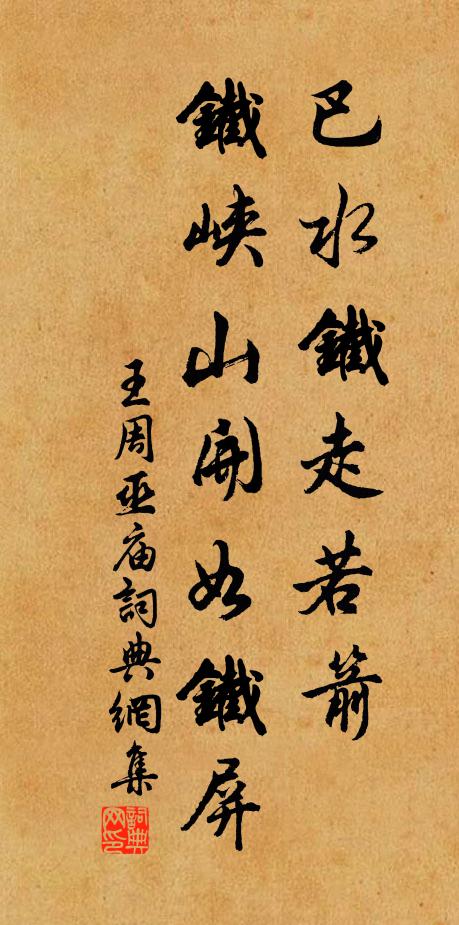 巴水鐵走若箭
鐵峽山開如鐵屏
王周巫庙詞典網集
詞典网印